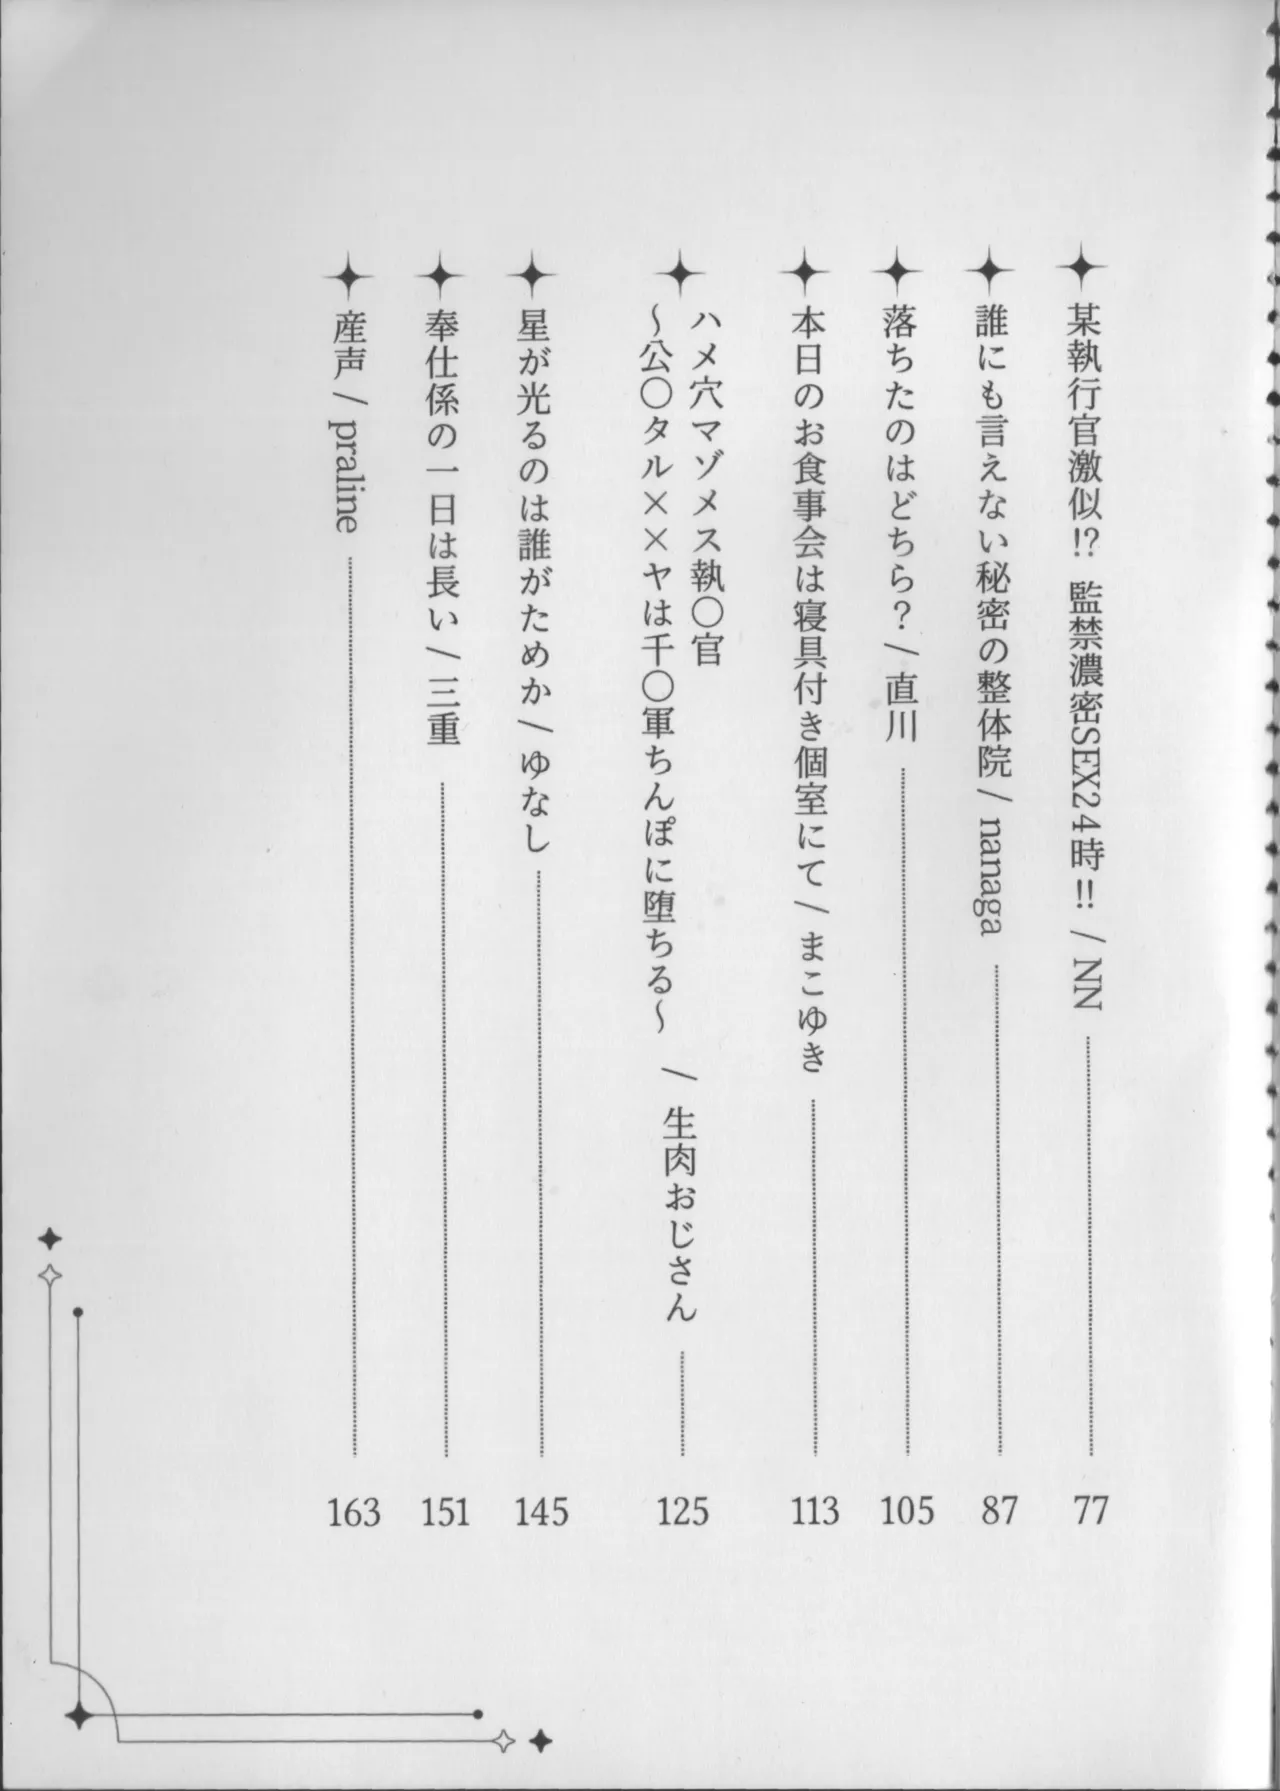 某執行官激似!? 監禁濃密SEX24時!! / NN 77
誰にも言えない秘密の整体院 / nanaga 87
落ちたのはどちら? / 直川 105
本日のお食事会は寝具付き個室にて / まこゆき 113
ハメ穴マゾメス執〇官
～公〇タル××ヤは千〇軍ちんぽに堕ちる～ / 生肉おじさん 125
星が光るのは誰がためか / ゆなし 145
奉仕係の一日は長い / 三重 151
産声 / praline 163